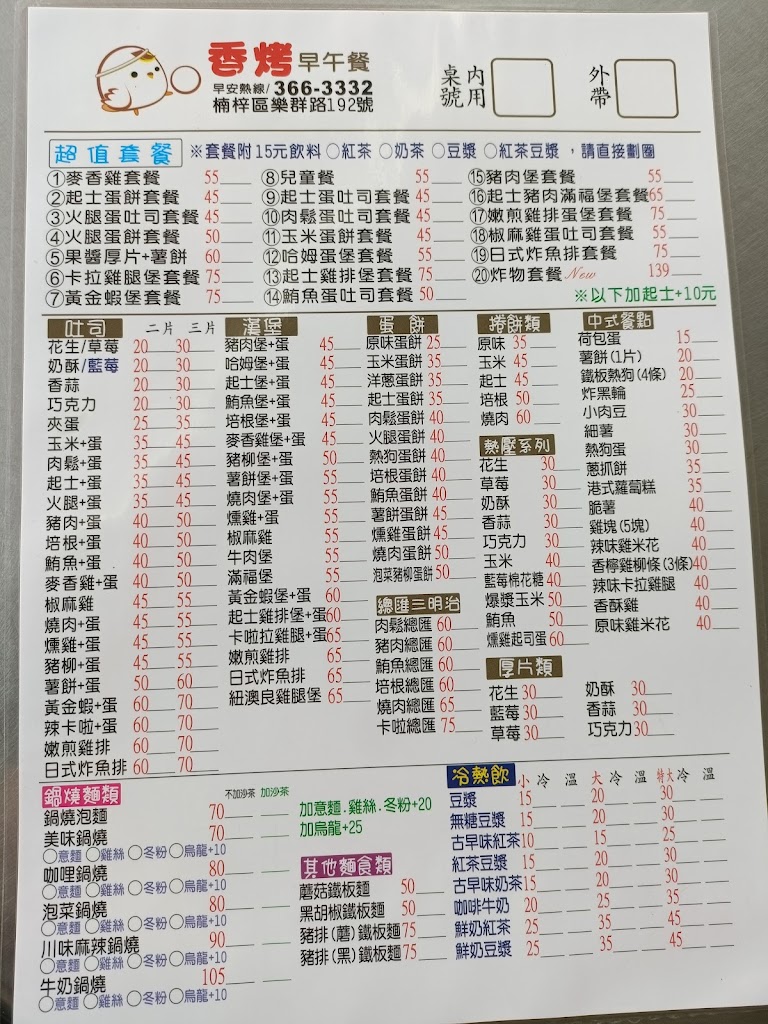 香烤早午餐
早安熱線/ 366-3332
楠梓區樂群路192號
桌號 內用
外帶
超值套餐 ※套餐附15元飲料 ○紅茶 ○奶茶 ○豆漿 ○紅茶豆漿 ,請直接劃圈
①麥香雞套餐 55 ⑧兒童餐 55 ⑮豬肉堡套餐 55
②起士蛋餅套餐 45 ⑨起士蛋吐司套餐 45 ⑯起士豬肉滿福堡套餐 65
③火腿蛋吐司套餐 45 ⑩肉鬆蛋吐司套餐 45 ⑰嫩煎雞排蛋堡套餐 75
④火腿蛋餅套餐 50 ⑪玉米蛋餅套餐 45 ⑱椒麻雞蛋吐司套餐 55
⑤果醬厚片+薯餅 60 ⑫哈姆蛋堡套餐 55 ⑲日式炸魚排套餐 75
⑥卡拉雞腿堡套餐 75 ⑬起士雞排堡套餐 75 ⑳炸物套餐 New 139
⑦黃金蝦堡套餐 75 ⑭鮪魚蛋吐司套餐 50
※以下加起士+10元
吐司 二片 三片
花生/草莓 20 30
奶酥/藍莓 20 30
香蒜 20 30
巧克力 20 30
夾蛋 25 35
玉米+蛋 35 45
肉鬆+蛋 35 45
起士+蛋 35 45
火腿+蛋 35 45
豬肉+蛋 40 50
培根+蛋 40 50
鮪魚+蛋 40 50
麥香雞+蛋 40 50
椒麻雞 45 55
燒肉+蛋 45 55
燻雞+蛋 45 55
豬柳+蛋 45 55
薯餅+蛋 50 60
黃金蝦+蛋 60 70
辣卡啦+蛋 60 70
嫩煎雞排 60 70
日式炸魚排 60 70
漢堡
豬肉堡+蛋 45
哈姆堡+蛋 45
起士堡+蛋 45
鮪魚堡+蛋 45
培根堡+蛋 45
麥香雞堡+蛋 45
豬柳堡+蛋 50
薯餅堡+蛋 55
燒肉堡+蛋 55
燻雞+蛋 55
椒麻雞 55
牛肉堡 55
滿福堡 55
黃金蝦堡+蛋 60
起士雞排堡+蛋 60
卡啦拉雞腿+蛋 65
嫩煎雞排 65
日式炸魚排 65
紐澳良雞腿堡 65
蛋餅
原味蛋餅 25
玉米蛋餅 35
洋蔥蛋餅 35
起士蛋餅 35
肉鬆蛋餅 40
火腿蛋餅 40
熱狗蛋餅 40
培根蛋餅 40
鮪魚蛋餅 40
薯餅蛋餅 45
燻雞蛋餅 45
燒肉蛋餅 50
泡菜豬柳蛋餅 50
總匯三明治
肉鬆總匯 60
豬肉總匯 60
鮪魚總匯 60
培根總匯 60
燒肉總匯 65
卡啦總匯 75
捲餅類
原味 35
玉米 45
起士 45
培根 50
燒肉 60
熱壓系列
花生 30
草莓 30
奶酥 30
香蒜 30
巧克力 30
玉米 40
藍莓棉花糖 40
爆漿玉米 50
鮪魚 50
燻雞起司蛋 60
中式餐點
荷包蛋 15
薯餅(1片) 20
鐵板熱狗(4條) 20
炸黑輪 25
小肉豆 30
細薯 30
熱狗蛋 30
蔥抓餅 35
港式蘿蔔糕 35
脆薯 40
雞塊(5塊) 40
辣味雞米花 40
香檸雞柳條(3條) 40
辣味卡拉雞腿 40
香酥雞 40
原味雞米花 40
厚片類
花生 30 奶酥 30
藍莓 30 香蒜 30
草莓 30 巧克力 30
鍋燒麵類 不加沙茶 加沙茶
鍋燒泡麵 70
美味鍋燒 70
○意麵 ○雞絲 ○冬粉 ○烏龍+10
咖哩鍋燒 80
○意麵 ○雞絲 ○冬粉 ○烏龍+10
泡菜鍋燒 80
○意麵 ○雞絲 ○冬粉 ○烏龍+10
川味麻辣鍋燒 90
○意麵 ○雞絲 ○冬粉 ○烏龍+10
牛奶鍋燒 105
○意麵 ○雞絲 ○冬粉 ○烏龍+10
加意麵.雞絲.冬粉+20
加烏龍+25
其他麵食類
蘑菇鐵板麵 50
黑胡椒鐵板麵 50
豬排(蘑)鐵板麵 75
豬排(黑)鐵板麵 75
冷熱飲 小 冷 溫 大 冷 溫 特大 冷 溫
豆漿 15 20 30
無糖豆漿 15 20 30
古早味紅茶 10 15 25
紅茶豆漿 15 20 30
古早味奶茶 15 20 30
咖啡牛奶 20 25 35
鮮奶紅茶 25 35 45
鮮奶豆漿 25 35 45